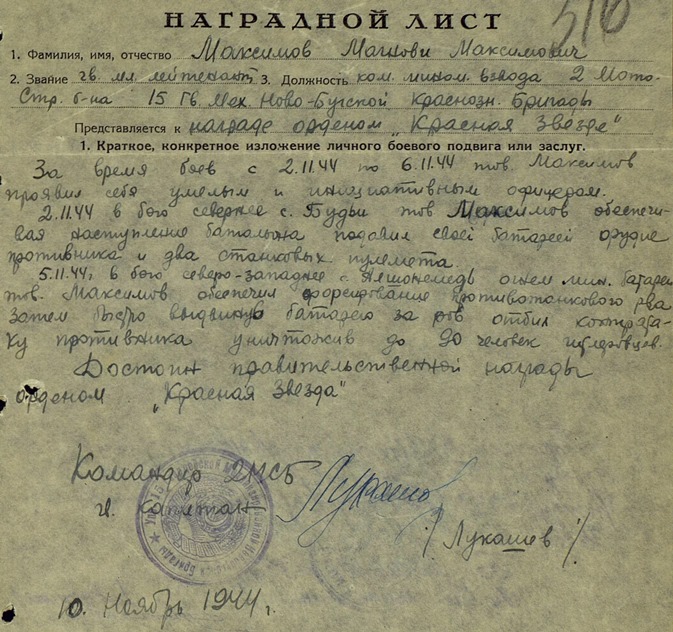 516
НАГРАДНОЙ ЛИСТ
1. Фамилия, имя, отчество Максимов Магнови Максимович
2. Звание гв. мл лейтенант 3. Должность ком. мином. взвода 2 Мото-
Стр. б-на 15 Гв. Мех. Ново-Бугской Краснозн. Бригады
Представляется к награде орденом „Красная Звезда"
1. Краткое, конкретное изложение личного боевого подвига или заслуг.
За время боев с 2.11.44 по 6.11.44 тов. Максимов
проявил себя умелым и инициативным офицером.
2.11.44 в бою севернее с. Буды тов Максимов обеспечи-
вая наступление батальона подавил своей батареей орудие
противника и два станковых пулемета.
5.11.44г. в бою северо-западнее с. огнем мин. батареи
тов. Максимов обеспечил форсирование противотанкового рва
Затем быстро выдвинув батарею за ров отбил контрата-
ку противника уничтожив до 20 человек гитлеровцев.
Достоин правительственной награды
орденом „Красная Звезда"
Командир 2МСБ
гв. капитан
/Лукашев/
10. Ноябрь 1944 г.